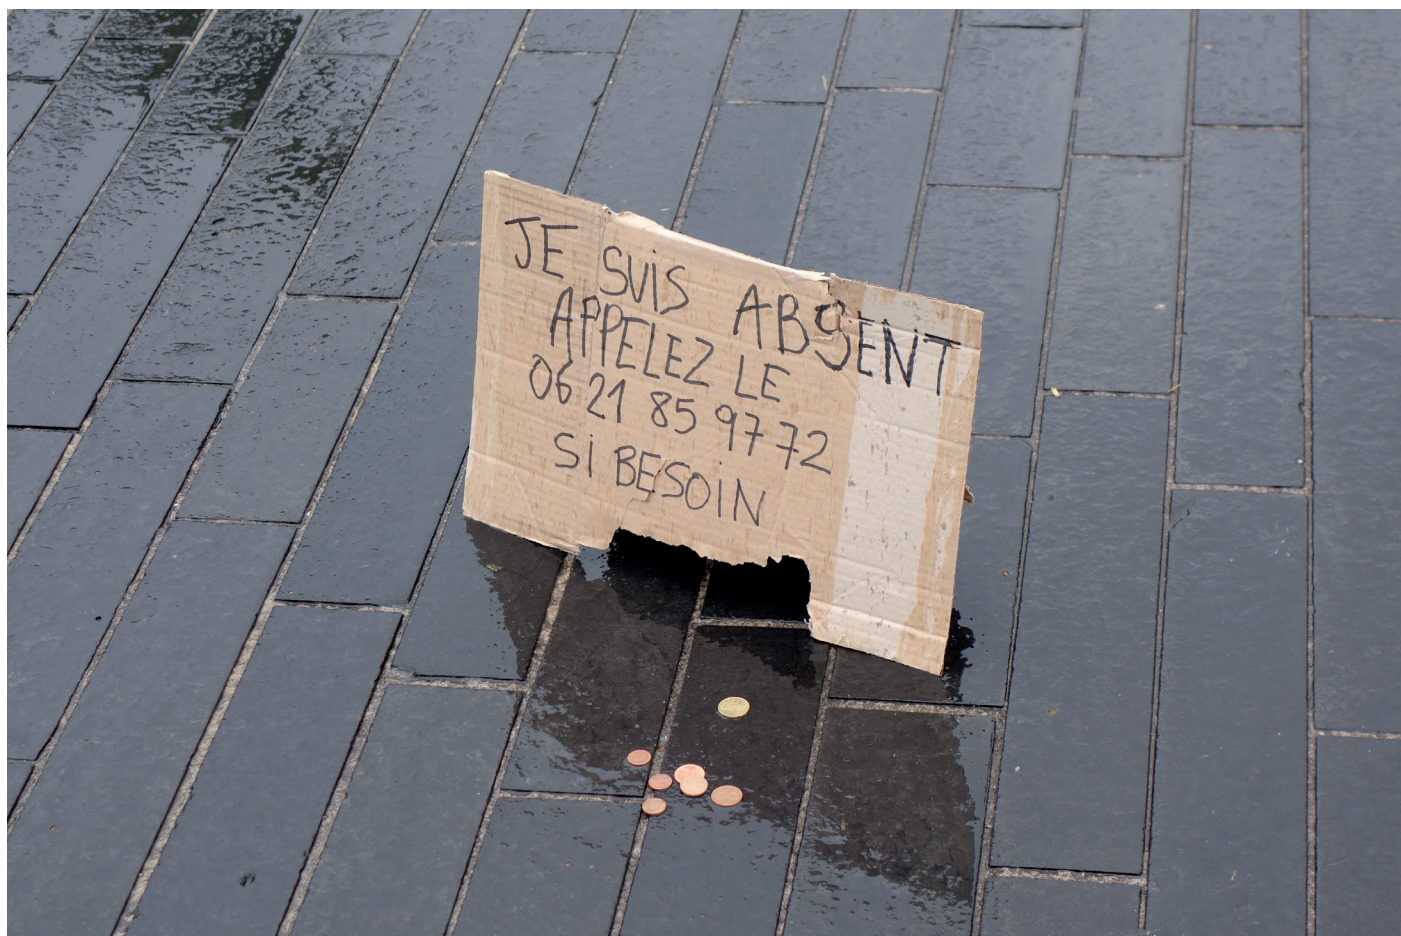 JE SUIS ABSENT
APPELEZ LE
06 21 85 97 72
Si BESOIN